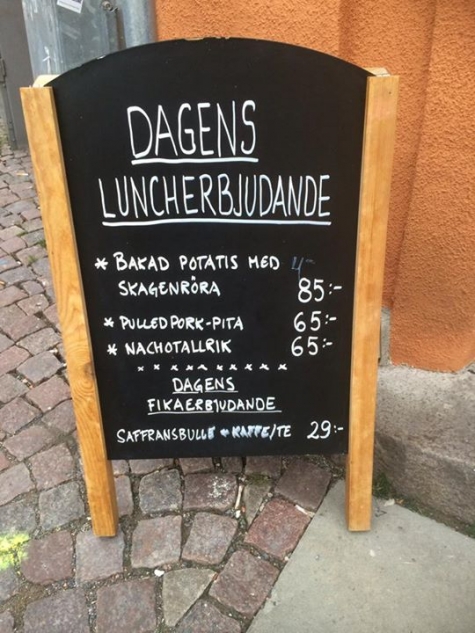 DAGENS
LUNCHERBJUDANDE
* BAKAD POTATIS MED
SKAGENRÖRA 85:-
* PULLED PORK-PITA 65:-
* NACHOTALLRIK 65:-
DAGENS
FIKAERBJUDANDE
SAFFRANSBULLE + KAFFE/TE 29:-